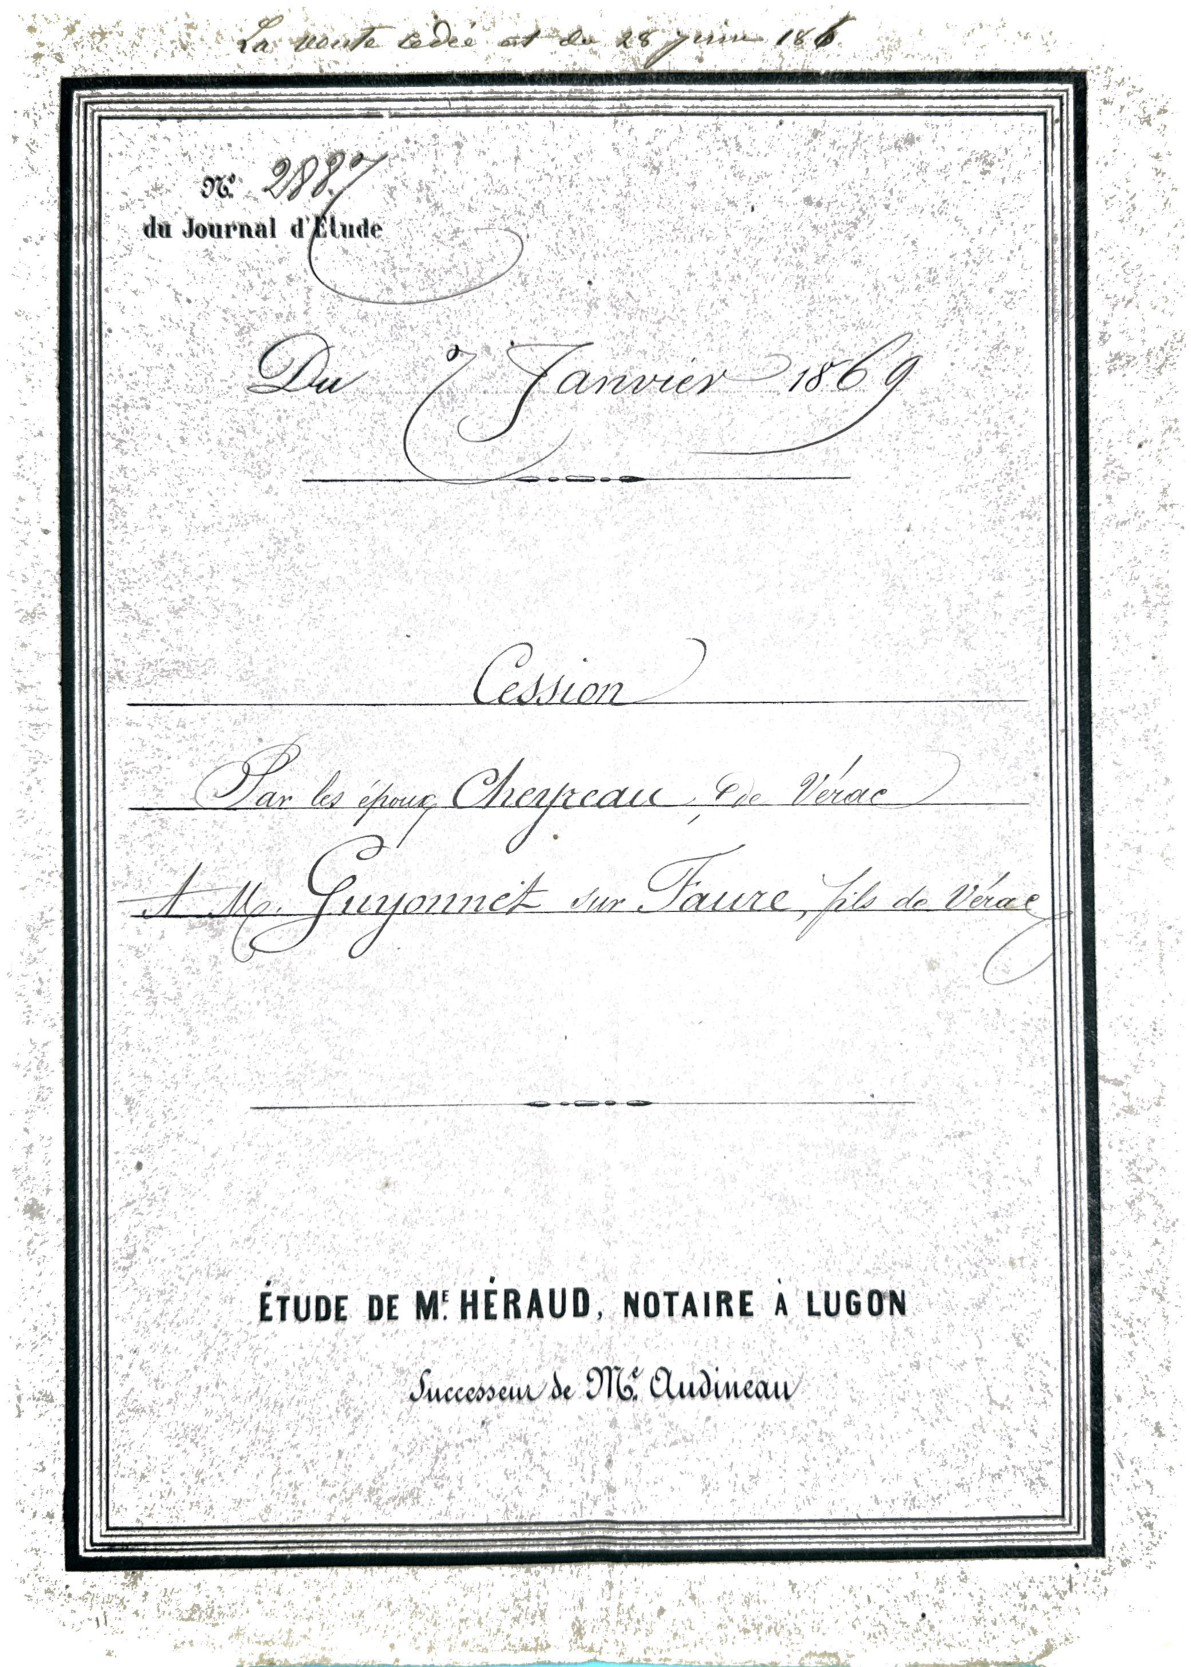 La rente cédée est du 28 juin 186
Nº 2887
du Journal d'Étude
Du 7 Janvier 1869
Cession
Par les époux Cheyreau, de Vérac
A Mr. Guyonnet sur Faure, fils de Vérac
ÉTUDE DE ME. HÉRAUD, NOTAIRE À LUGON
Successeur de Me. Audineau